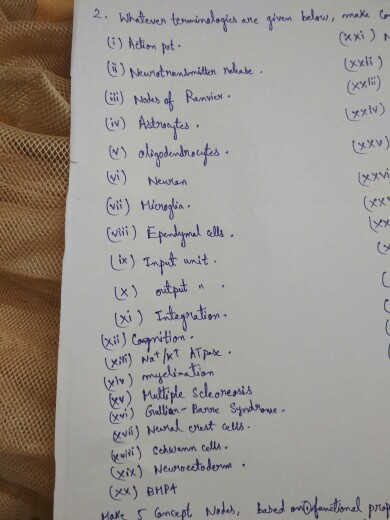 2. Whatever terminologies are given below, make Co
(i) Action pot.
(ii) Neurotransmitter release.
(iii) Nodes of Ranvier.
(iv) Astrocytes.
(v) oligodendrocytes.
(vi) Neuron
(vii) Microglia.
(viii) Ependymal cells.
(ix) Input unit.
(x) output "
(xi) Integration.
(xii) Cognition.
(xiii) Na+/K+ ATPase.
(xiv) myelination
(xv) Multiple Scleorosis
(xvi) Gullian-Barre Syndrome.
(xvii) Neural crest cells.
(xviii) Schwann cells.
(xix) Neuroectoderm.
(xx) BMP4
Make 5 Concept Nodes, based on functional prin
(xxi) N
(xxii)
(xxiii)
(xxiv)
(xxv)
(xxvi
(xx
(xx
(x
(
(
(
(